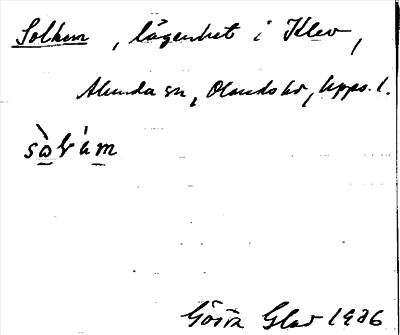 Solhem, lägenhet i Klev,
Alunda sn, Olands hd, Upps. l.
Gösta Glad 1936